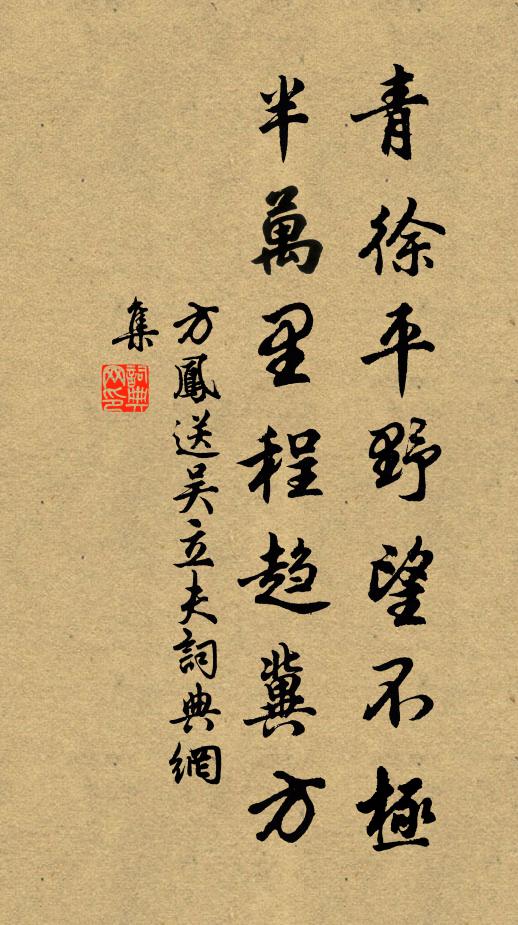 青徐平野望不極
半萬里程趨冀方
方鳳送吴立夫詞典網
集
詞典
网印